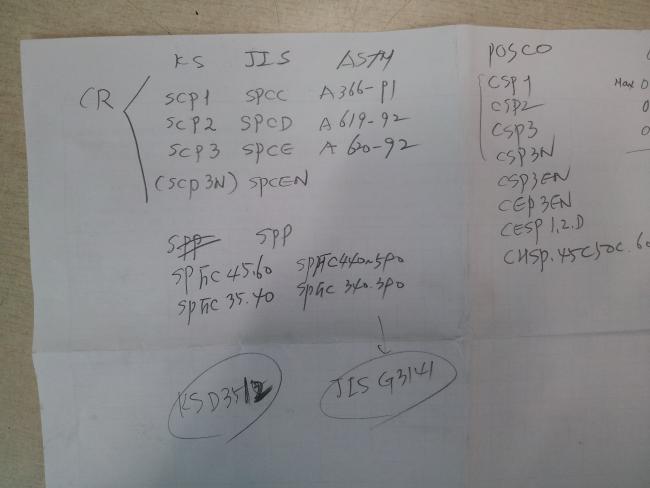 KS JIS ASTM
CR
SCP1 SPCC A366-P1
SCP2 SPCD A619-92
SCP3 SPCE A620-92
(SCP3N) SPCEN
SPP SPP
SPFC 45.60 SPFC 440~590
SPFC 35.40 SPFC 340.390
KSD3512
JIS G3141
POSCO
CSP1 Max 0
CSP2 0
CSP3 0
CSP3N
CSP3EN
CEP3EN
CESP 1.2.D
CHSP.45C50C.60